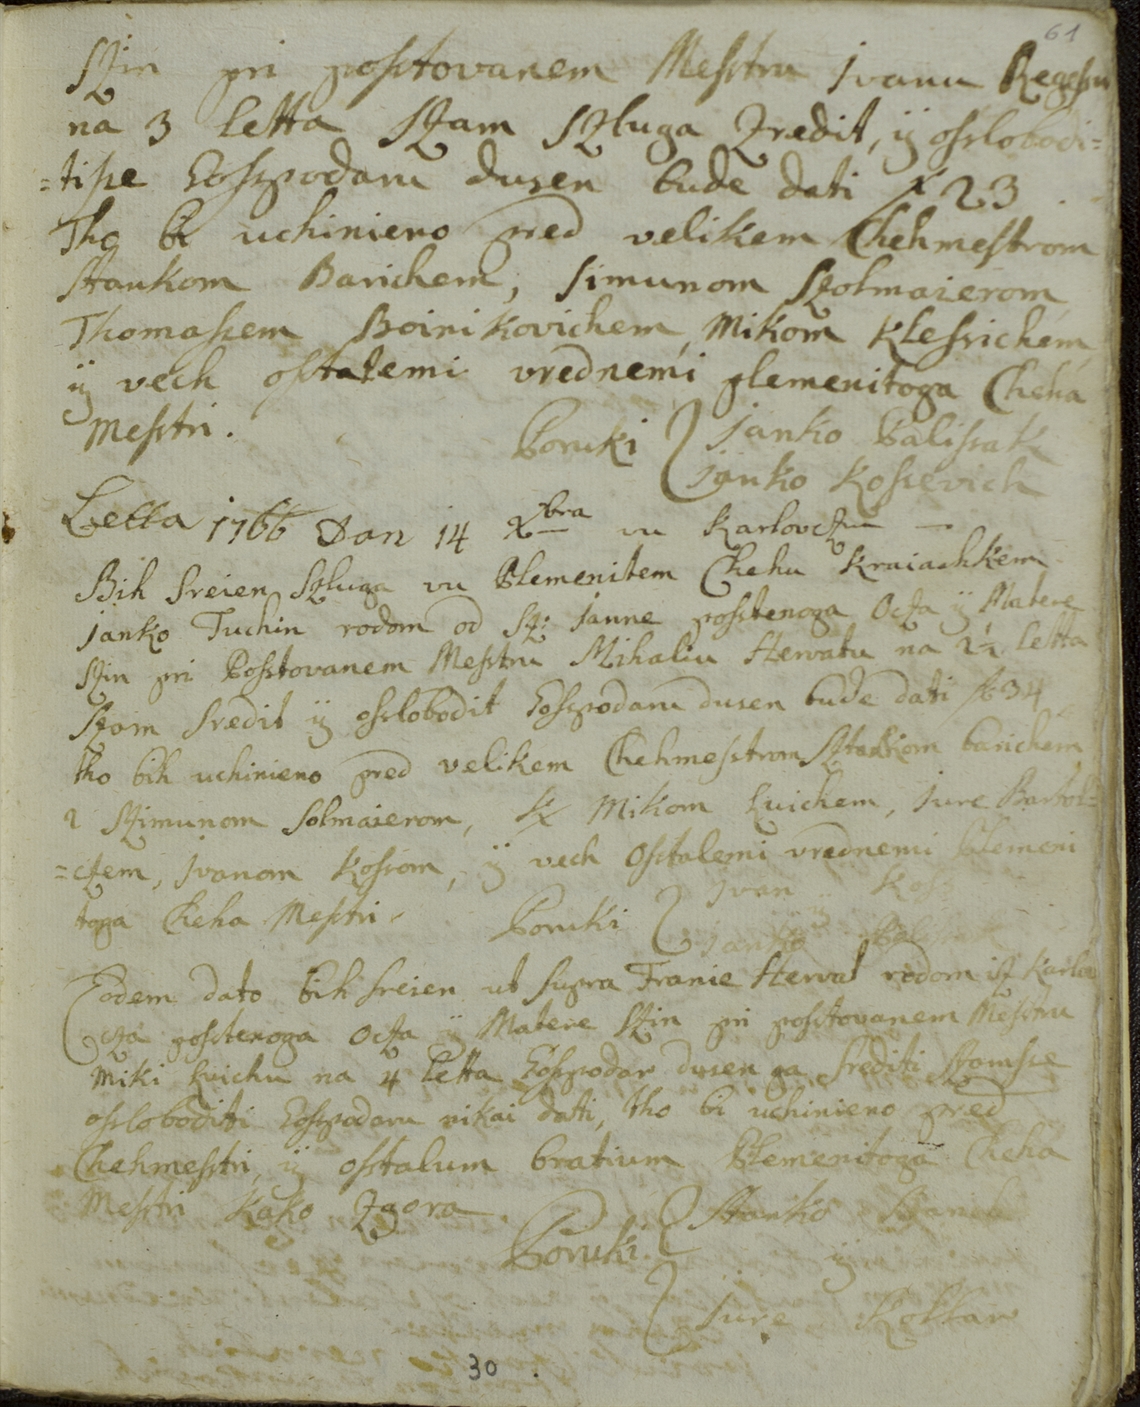 61
Szin pri postovanem Mestru Ivanu
na 3 letta Szam Szluga Zredit, ÿ oslobodi=
=tisse Gospodaru dusen bude dati f 23
Tho bi uchinieno pred velikem Chehmestrom
Stankom Barichem, Simunom Szolmaierom
Thomassem Boinikovichem, Mikom Klessichem
ÿ vech ostalemi vrednemi plemenitoga Cheha
Mestri. Poruki { Janko Balissak
Janko Kossevich
Letta 1766 Dan 14 Xbra vu Karlovczu
Bih sreien Szluga vu Plemenitem Chehu Kraiachkem
Janko Tuchin rodom od Sz: Janne postenoga Ocza ÿ Matere
Szin pri Postovanem Mestru Mihaliu Hervatu na 2½ letta
Szam sredit ÿ oslobodit Gospodaru dusen bude dati f 34
tho bih uchinieno pred velikem Chehmestrom Stankom barichem
2 Szimunom Solmaierom, Mikom Luichem, Jure Bartol=
=czem, Ivanom Kossom, ÿ vech Ostalemi vrednemi Plemeni
toga Cheha Mestri. Poruki { Ivan Koss
ÿ
Janko Balissak
Eodem dato bih sreien ut supra Franie Hervat rodom iz Karlov
cza postenoga Ocza ÿ Matere Szin pri postovanem Mestru
Miki Luichu na 4 letta Gospodar dusen ga srediti Szamsse
osloboditi Gospodaru nikai dati, tho bi uchinieno pred
Chehmestri, ÿ ostalum bratium Plemenitoga Cheha
Mestri kako Zgora { Stanko Barich
Poruki. ÿ
{ Jure Kottar
30